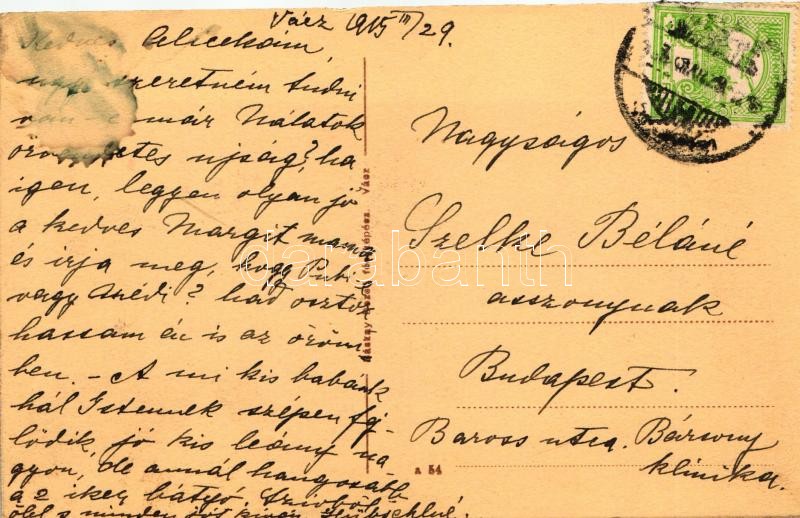 Vácz 1915 III/29.
Kedves Alicekám,
nagyon szeretném tudni
van-e már Nálatok
örvendetes ujság? ha
igen, legyen olyan jó
a kedves Margit mama
és irja meg, hogy Pubi-e
vagy Médi? had osztoz
hassam én is az öröm
ben. - A mi kis babánk
hál Istennek szépen fej-
lődik, jó kis leány na
gyon, de annál hangosabb
a 2 iker bátyó. Szivből
ölel s minden jót kiván
Nagyságos
Szelke Béláné
asszonynak
Budapest.
Baross utca. Bársony
klinika.
a 54
darabanth